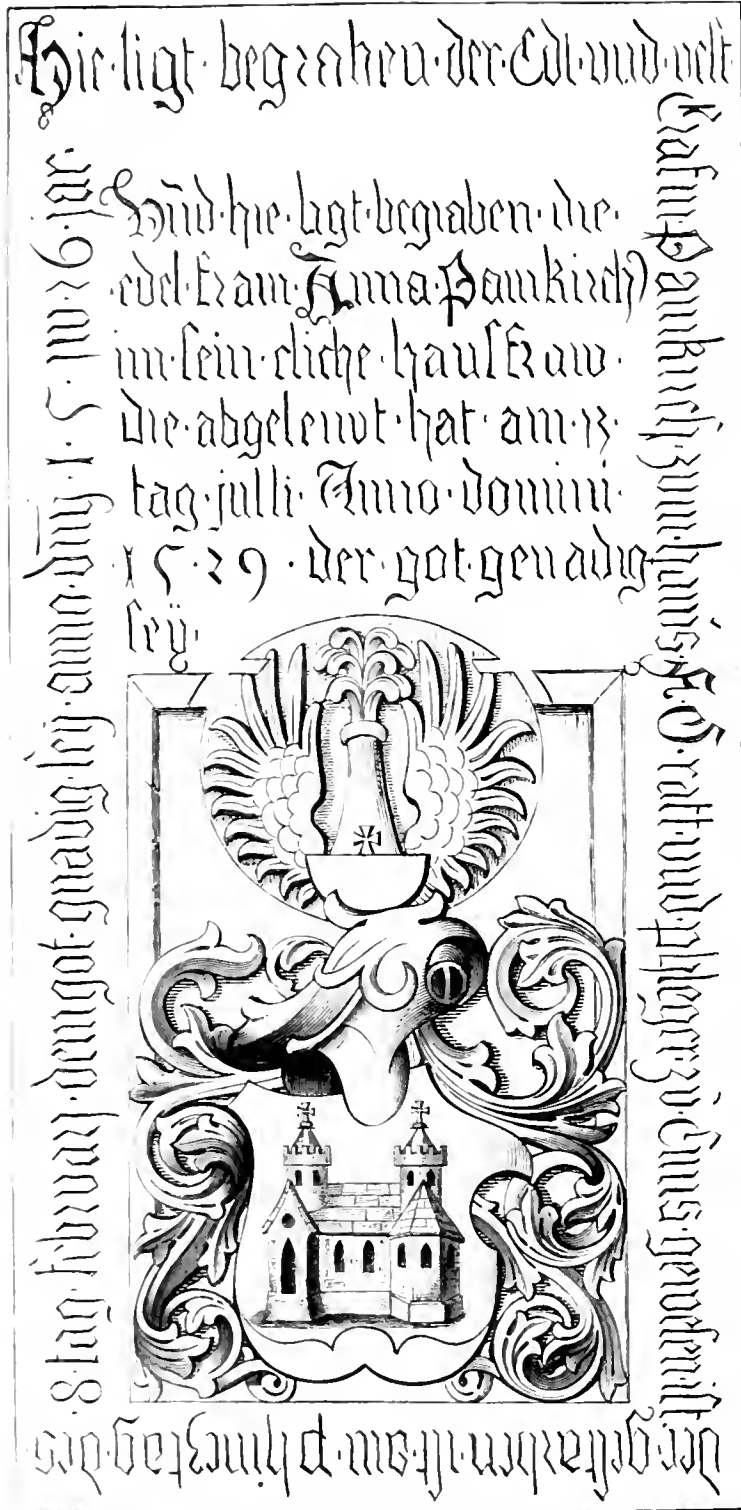 Hie·ligt·begraben·der·Edl·vnd·vest
Erasm·Pamkirch·zum·K·D·ratt·vnd·phleger·zů·Enns·gewesen·ist
der·gestarben·ist·am·phincztag·des
·8·tag·februarj·demgot·gnadig·seÿ·anno·dnÿ·1·5·26·jar·
Vn̄d·hie·ligt·begraben·die·
·edel·fraw·Anna·Pamkirch
im·sein·eliche·hausfraw·
die·abgeleuvt·hat·am·13·
tag·julli·Anno·domini·
15·29·der·got·genadig
seÿ·